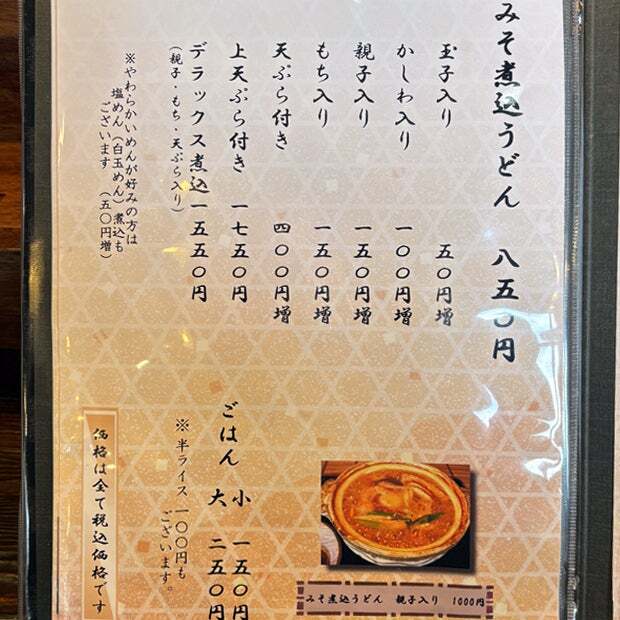 みそ煮込うどん 八五〇円
玉子入り 五〇円増
かしわ入り 一〇〇円増
親子入り 一五〇円増
もち入り 一五〇円増
天ぷら付き 四〇〇円増
上天ぷら付き 一七五〇円
デラックス煮込 一五五〇円
(親子・もち・天ぷら入り)
※やわらかいめんが好みの方は
塩めん(白玉めん)煮込も
ございます (五〇円増)
ごはん 小 一五〇円
大 二五〇円
※半ライス一〇〇円も
ございます。
価格は全て税込価格です
みそ煮込うどん 親子入り 1000円